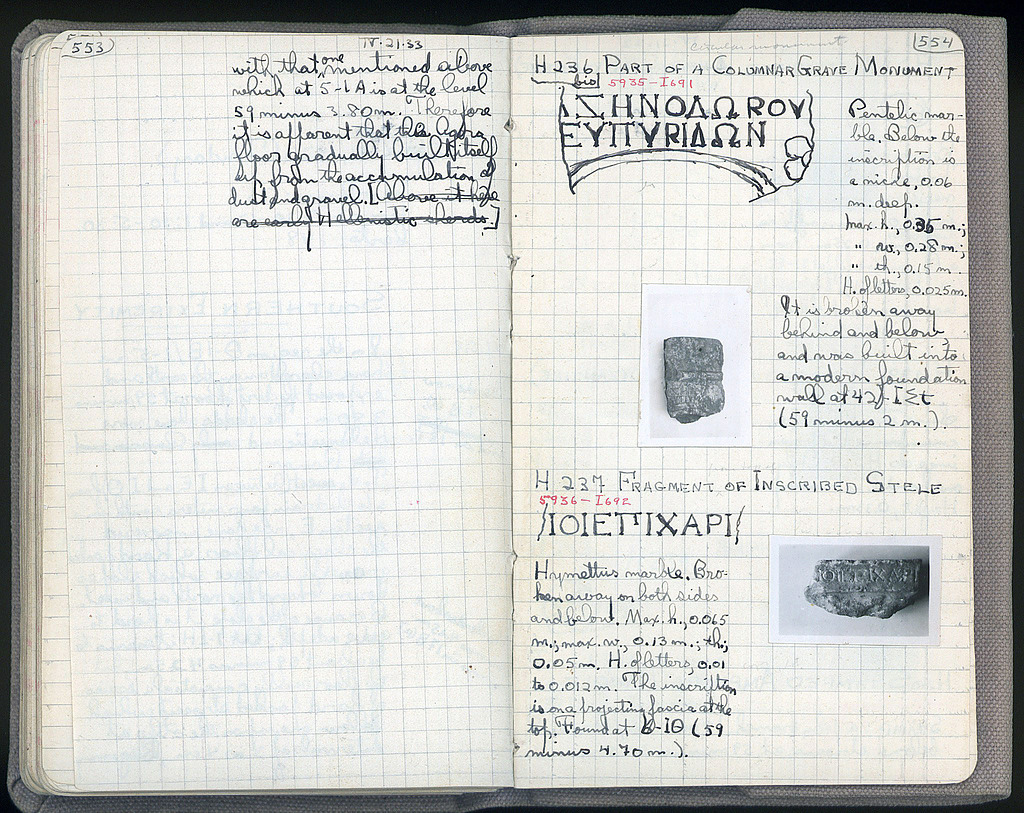 553
IV-21-33
with that one mentioned above
which at 5-ΙΑ is at the level
59 minus 3.80m. Therefore
it is apparent that the Agora
floor gradually built itself
up from the accumulation of
dust and gravel. [Above it here
are early Hellenistic sherds.]
554
circular monument
H 236 PART OF A COLUMNAR GRAVE MONUMENT
bis
5935-I691
ΙΣΗΝΟΔΩΡΟΥ
ΕΥΠΥΡΙΔΩΝ
Pentelic mar-
ble. Below the
inscription is
a niche, 0.06
m. deep.
Max. h., 0.35 m.;
" w., 0.28 m.;
" th., 0.15 m.
H. of letters, 0.025m.
It is broken away
behind and below,
and was built into
a modern foundation
wall at 42/-ΙΣτ
(59 minus 2 m.).
H 237 FRAGMENT OF INSCRIBED STELE
5936-I692
ΙΟΙΕΠΙΧΑΡΙ
Hymettus marble. Bro-
ken away on both sides
and below. Max. h., 0.065
m.; max. w., 0.13 m.; th.,
0.05 m. H. of letters, 0.01
to 0.012 m. The inscription
is on a projecting fascia at the
top. Found at 6-ΙΘ (59
minus 4.70 m.).